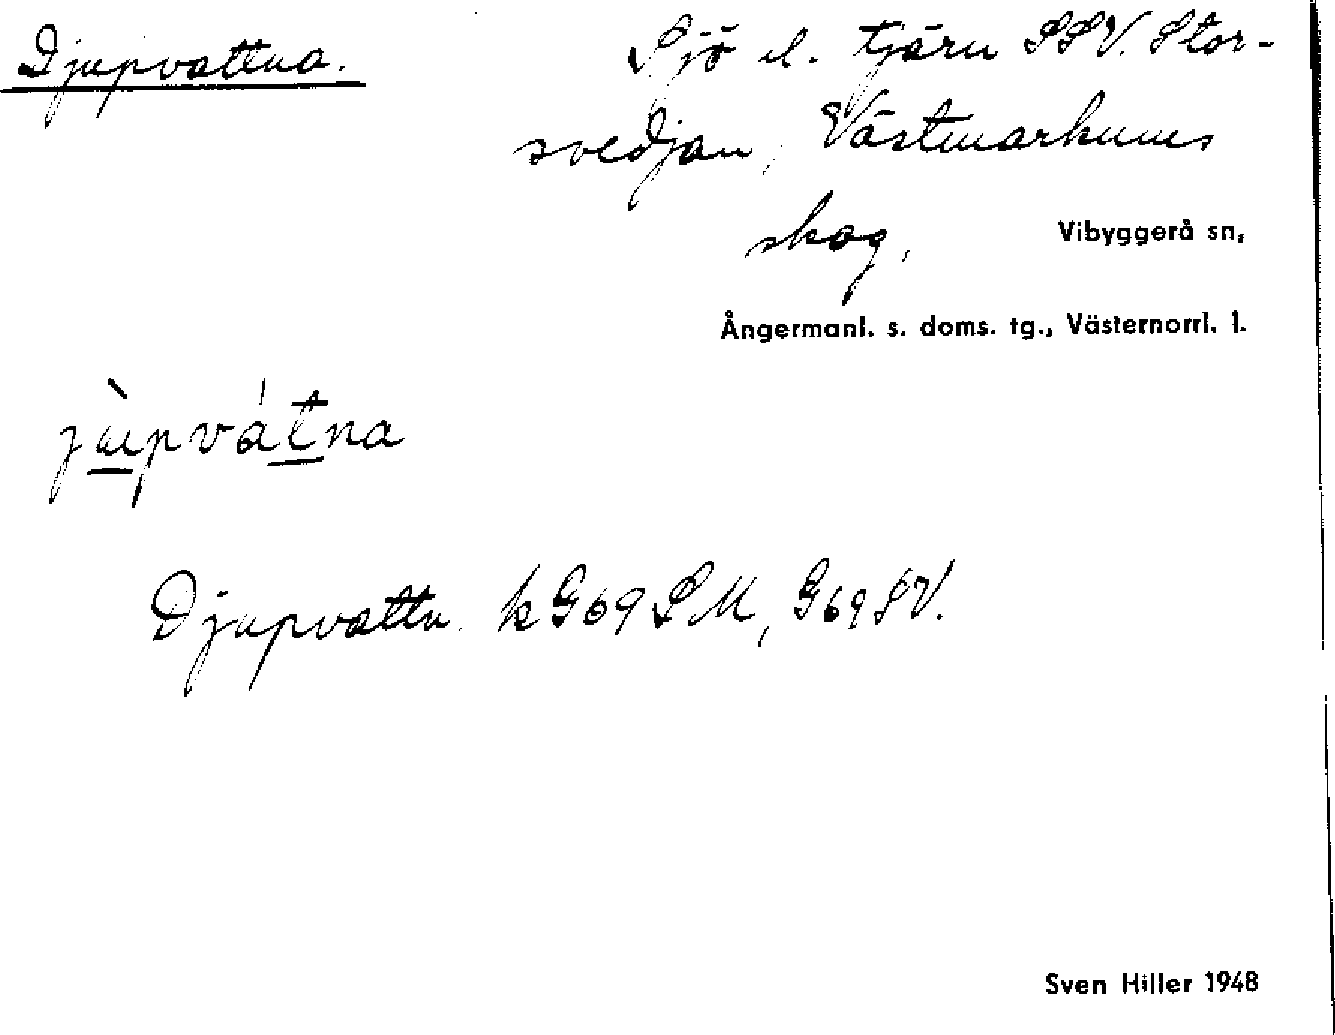 Djupvattna.
Sjö el. tjärn SSV. Stor-
svedjan, Västmarkums
skog, Vibyggerå sn,
Ångermanl. s. doms. tg., Västernorrl. l.
jùpvátna
Djupvattn. k G69 SM, G69 SV.
Sven Hiller 1948